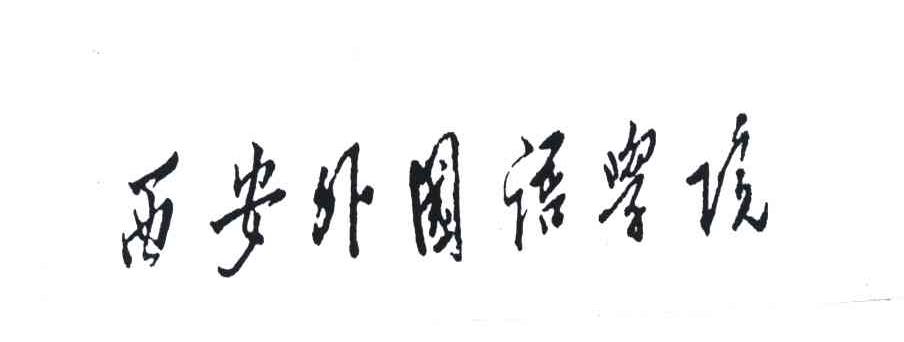 西安外國語學院